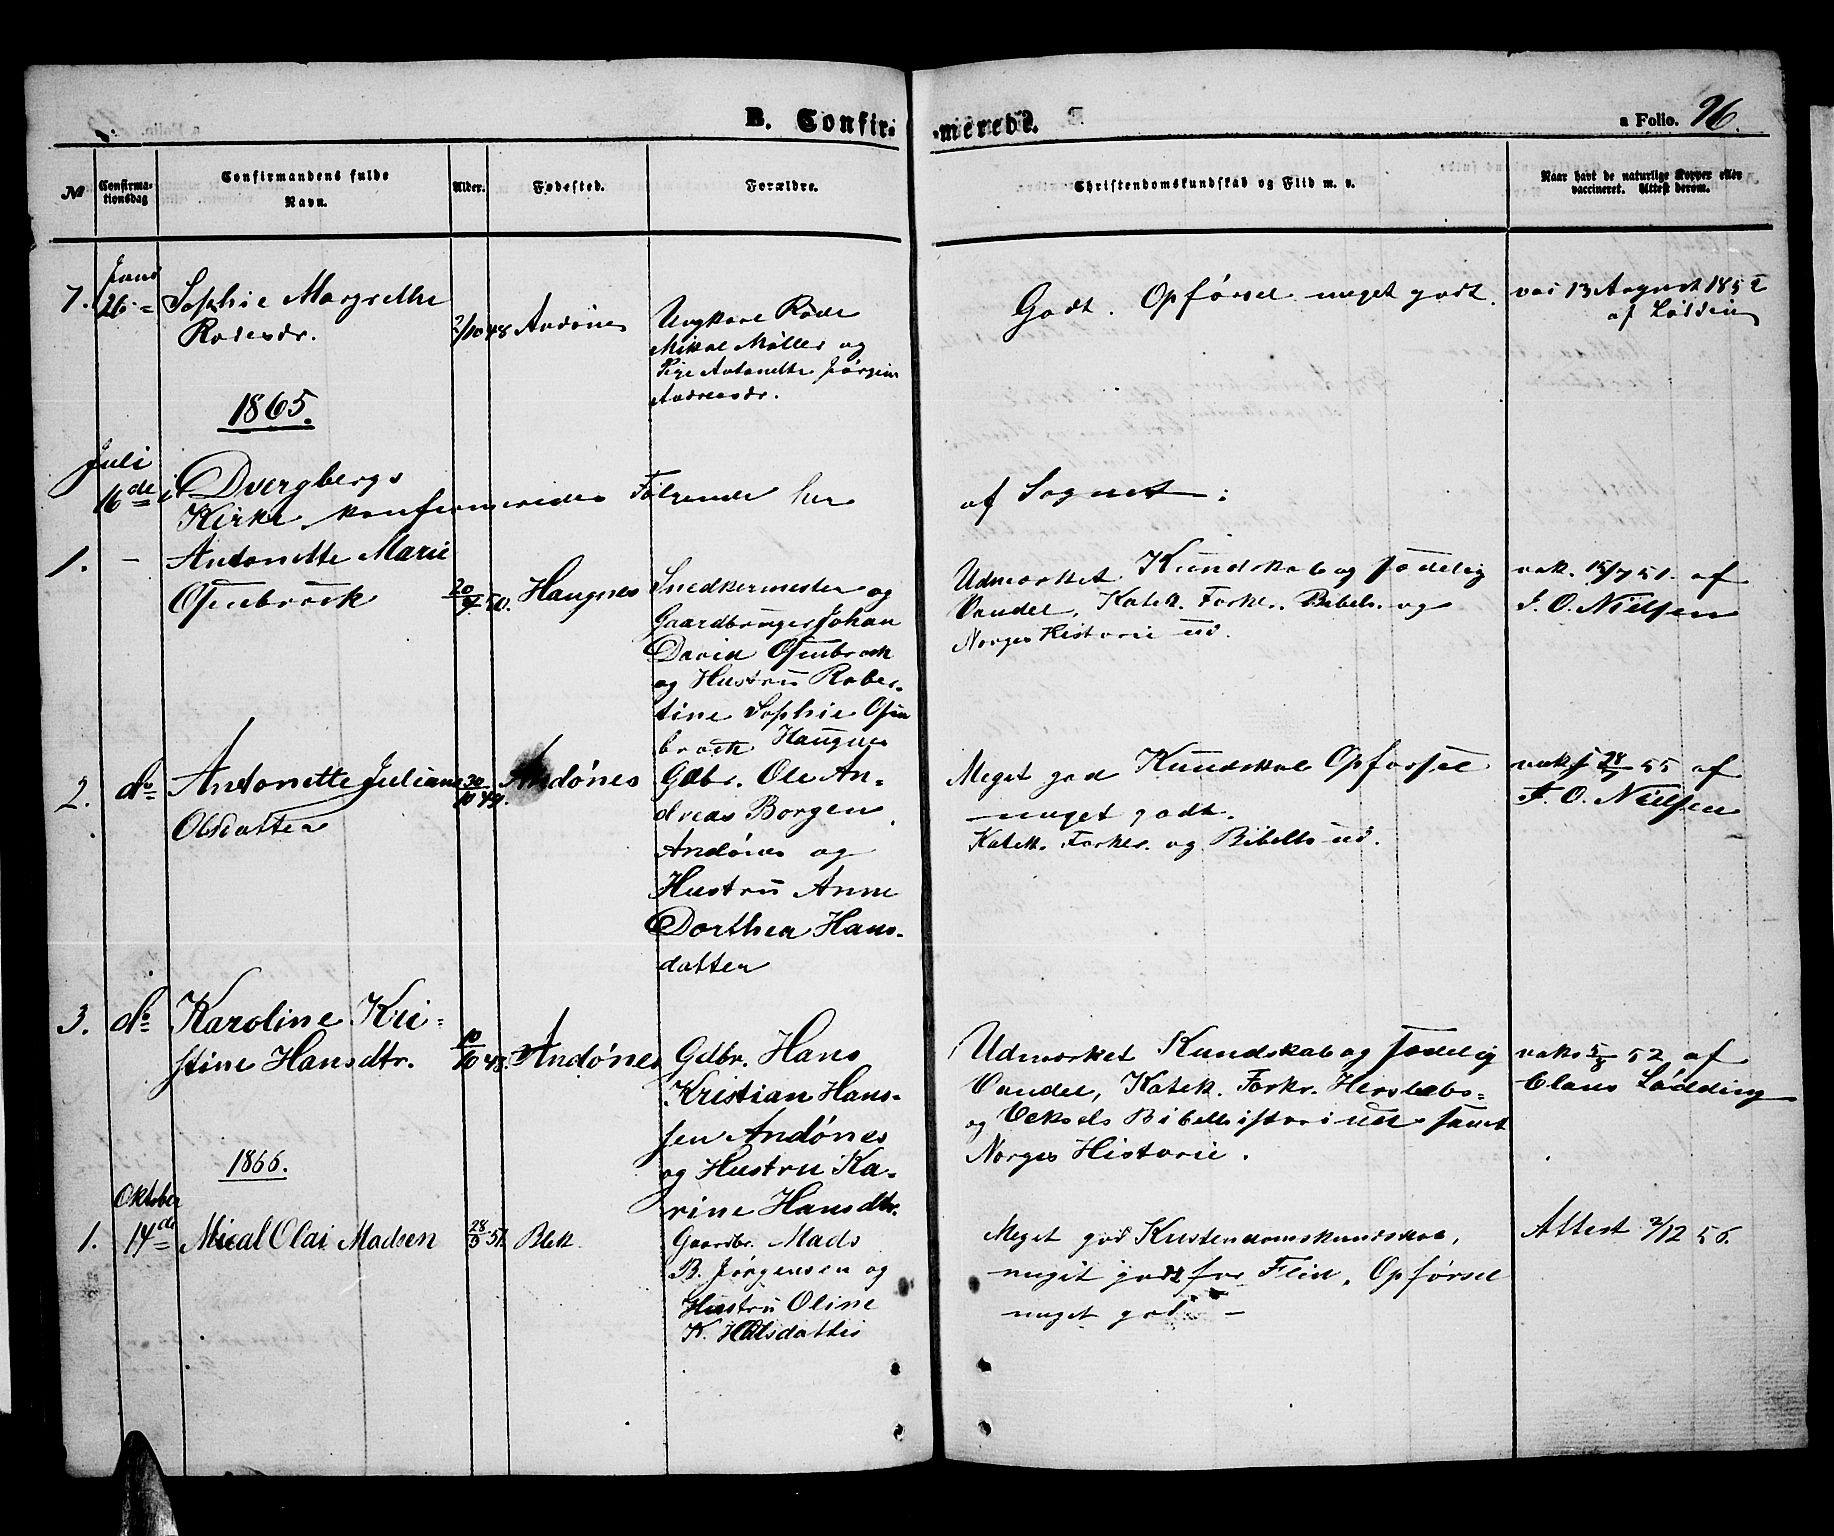 B. Confirmerede.
a Folio. 96.
№
Confirmationsdag
Confirmandens fulde Navn.
Alder.
Fødested.
Forældre.
Christendomskundskab og Flid m. v.
Naar havt de naturlige Kopper eller vaccineret. Attest derom.
7. 26.
Sophie Margrethe
2/10 48
Andønes
Ungkarl
Mikal Møller og
Pige Antonette Jørgine
Andreasdr.
Godt. Opførsel meget godt.
13 August 185
af
1865.
Juli
16de i Dvergbergs
Kirke konfirmeredes Følgende her
af Sognet:
1. –
Antonette Marie
Osenbrock
20/7 50.
Haugnes
Snedkermester og
Gaardbruger Johan
David Osenbrock
og Hustru Rober-
tine Sophie Osen
brock Haugnes
Udmærket Kundskab og sædelig
Vandel, Katek. Forkl. Bibels. og
Norges Historie ud.
vak. 15/7 51. af
J. O. Nielsen
2. do
Antonette Juliane
Olsdatter
30/10 49.
Andønes
Gdbr. Ole An-
dreas Borgen,
Andønes og
Hustru Anne
Dorthea Hans-
datter
Meget god Kundskab Opførsel
meget godt.
Katek. Forkl. og Bibelh. ud.
55 af
J. O. Nielsen
3. do
Karoline Kri-
stine Hansdtr.
10/10 48.
Andønes
Gdbr. Hans
Kristian Han-
sen Andønes
og Hustru Ka-
rine Hansdtr.
Udmærket Kundskab og sædelig
Vandel, Katek. Forkr. Herslebs-
og Veksels Bibelhistori ud samt
Norges Historie.
52 af
Claus Lødding
1866.
Oktober
1. 14de
Mical Olai Madsen
28/5 51.
Blek
Gaardbr. Mads
B. Jørgensen og
Hustru Oline
K.
Meget god Kristendomskundskab,
meget godt for Flid, Opførsel
meget god –
Attest 2/12 56.